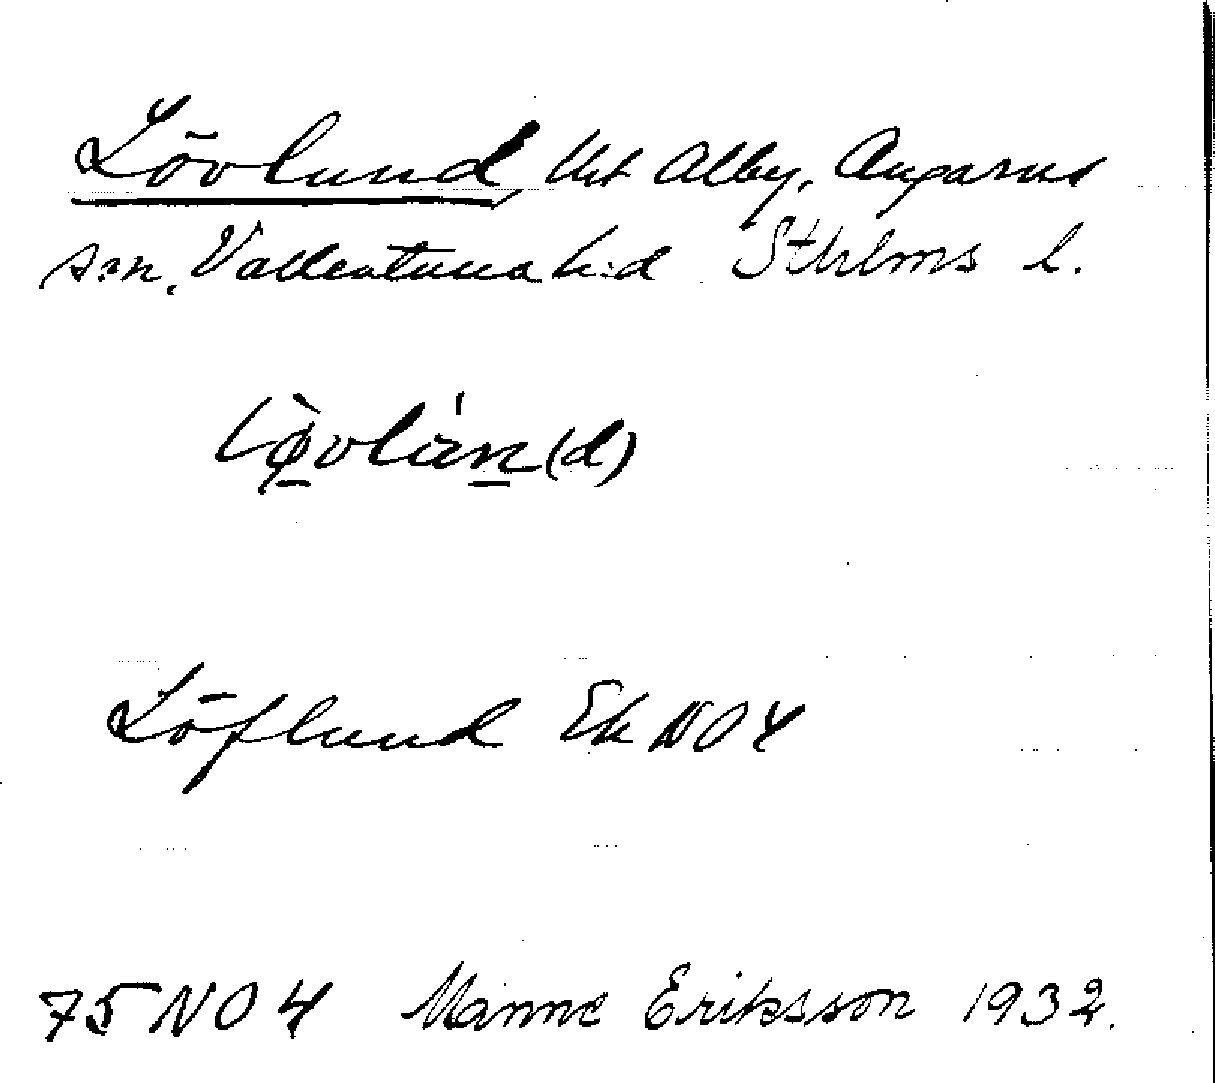 Lövlund, Ut Alby, Angarns
sn, Vallentuna h:d Sthlms l.
Löflund Ek NO 4
75 NO 4 Manne Eriksson 1932.